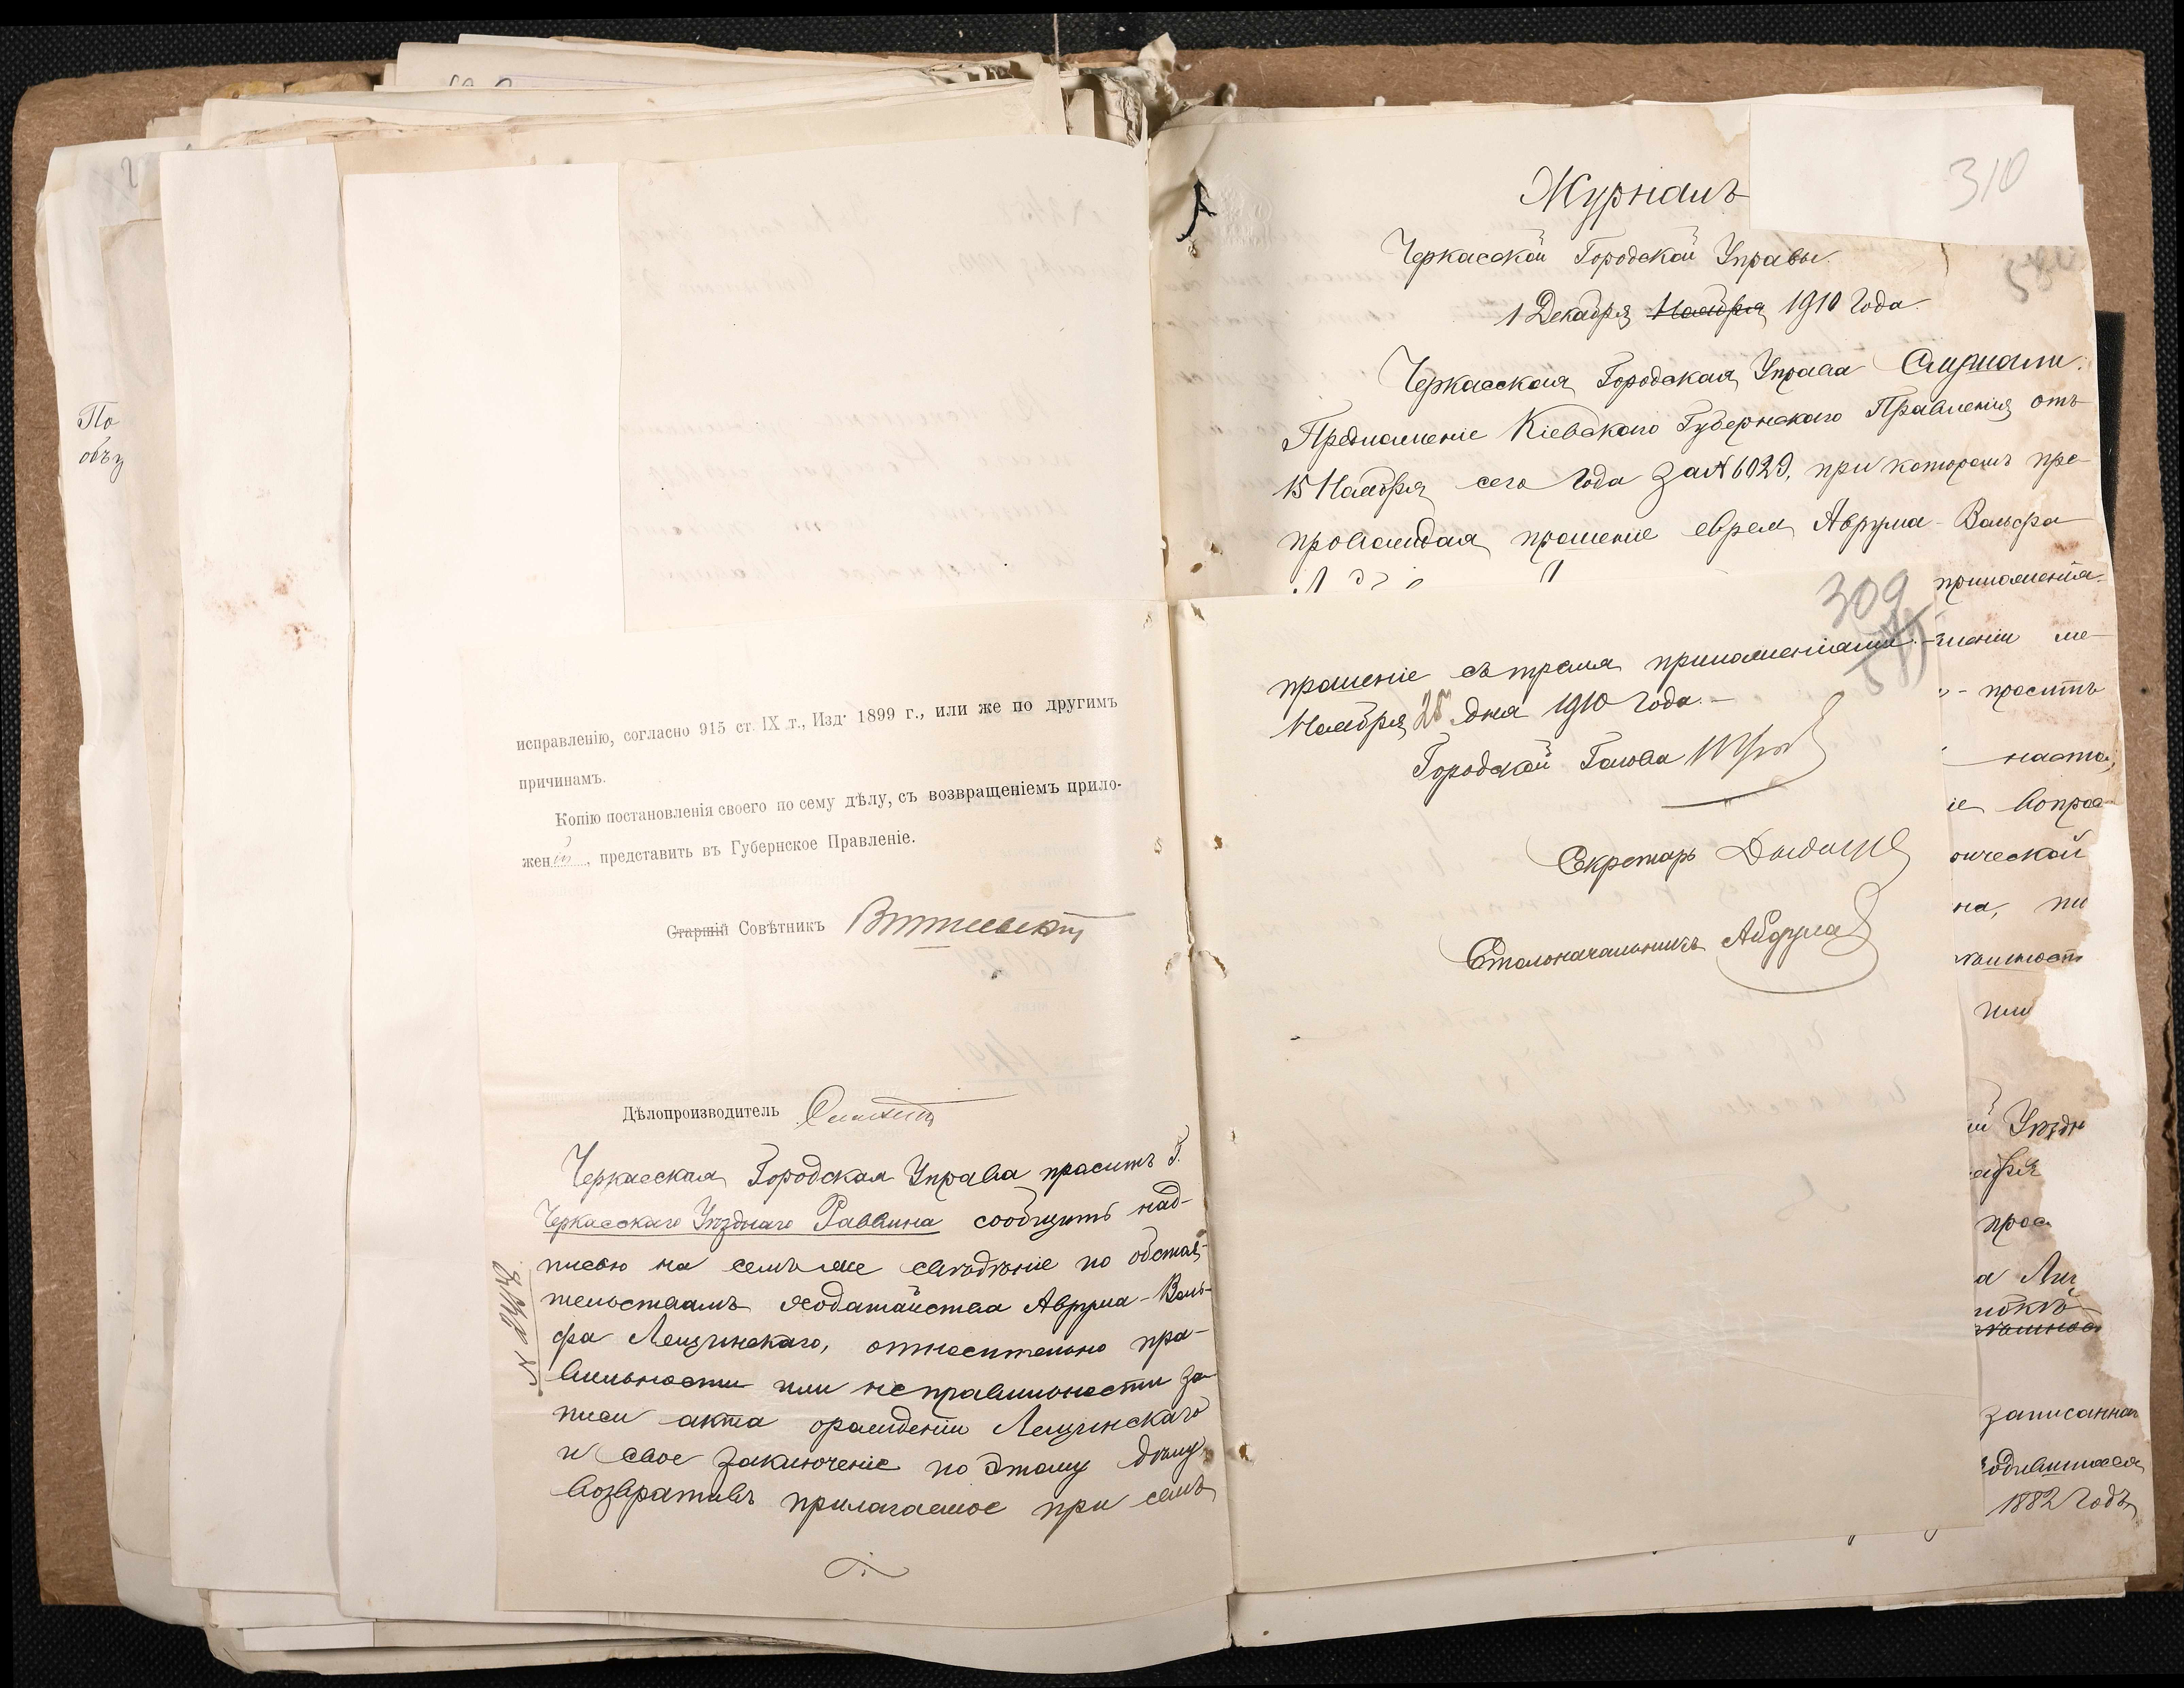 По
объу
исправленію, согласно 915 ст. IX т., Изд. 1899 г., или же по другимъ
причинамъ.
Копію постановленія своего по сему дѣлу, съ возвращеніемъ прило-
женій, представить въ Губернское Правленіе.
Старшій Совѣтникъ
Дѣлопроизводитель
Черкасская Городская Управа проситъ Г.
Черкасскаго Уѣзднаго Раввина сообщить над-
писью на семъ же свѣдѣніе по обстоя-
тельствамъ ходатайства Аврума-Воль-
фа Лещинскаго, относительно пра-
вильности или неправильности за
писи акта о рожденіи Лещинскаго
и свое заключеніе по этому дѣлу,
возвративъ прилагаемое при семъ
Журналъ
310
Черкасской Городской Управы.
1 Декабря Ноября 1910 года.
Черкасская Городская Управа Слушали:
Предложеніе Кіевскаго Губернскаго Правленія отъ
15 Ноября сего года за № 6029, при которомъ пре-
провождая прошеніе еврея Аврума-Вольфа
309
прошеніе съ тремя приложеніями.-
Ноября 25 дня 1910 года.-
Городской Голова
Секретарь
Столоначальникъ
приложенія.
женіи ме-
- проситъ
настоя
іе вопрос
рической
на, по
или
й Уѣздн
абря
прос
а Ли
записанная
родившаяся
1882 годъ